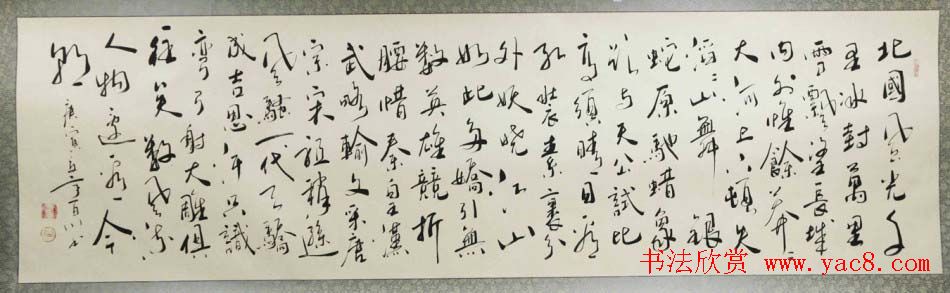 北國風光千
里冰封萬里
雪飄望長城
内外惟餘莽々
大河上下頓失
滔々山舞銀
蛇原馳蜡象
欲与天公試比
高須晴日看
紅妝素裹分
外妖嬈江山
如此多嬌引無
數英雄競折
腰惜秦皇漢
武略輸文采唐
宗宋祖稍遜
風騷一代天驕
成吉思汗只識
彎弓射大雕俱
往矣數風流
人物還看今
朝
庚寅
百川书
书法欣赏
www.yac8.com